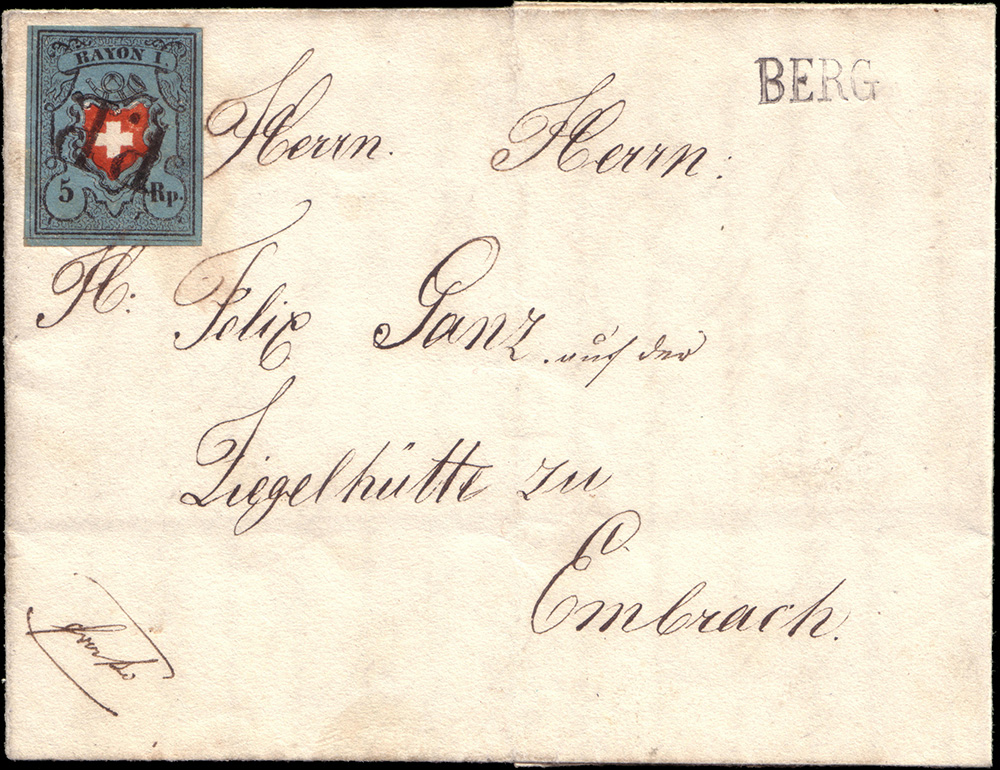 RAYON I.
5 Rp.
BERG
Herrn. Herrn:
H: Felix Ganz. auf der
Ziegelhütte zu
Embrach.
franko